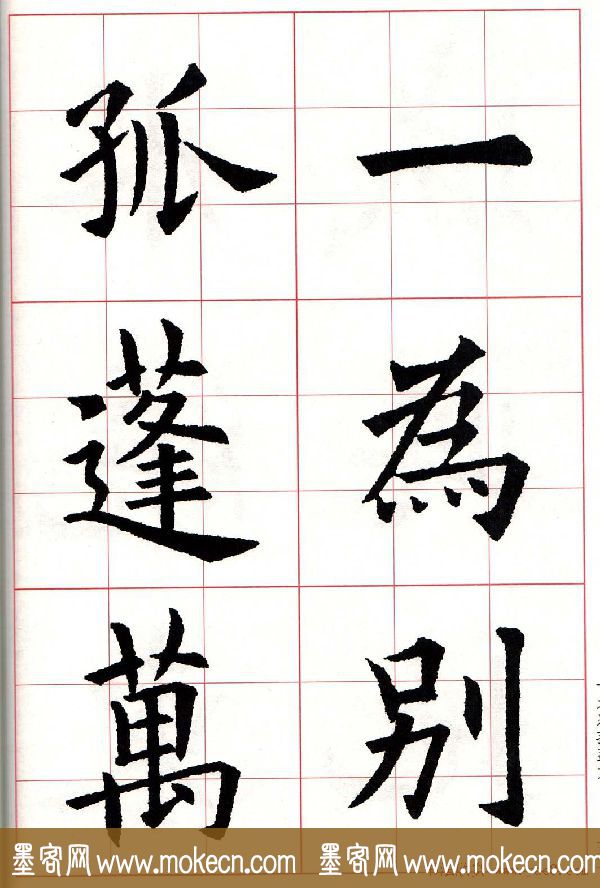 一為别
孤蓬萬
墨客网 www.mokecn.com 墨客网 www.mokecn.com